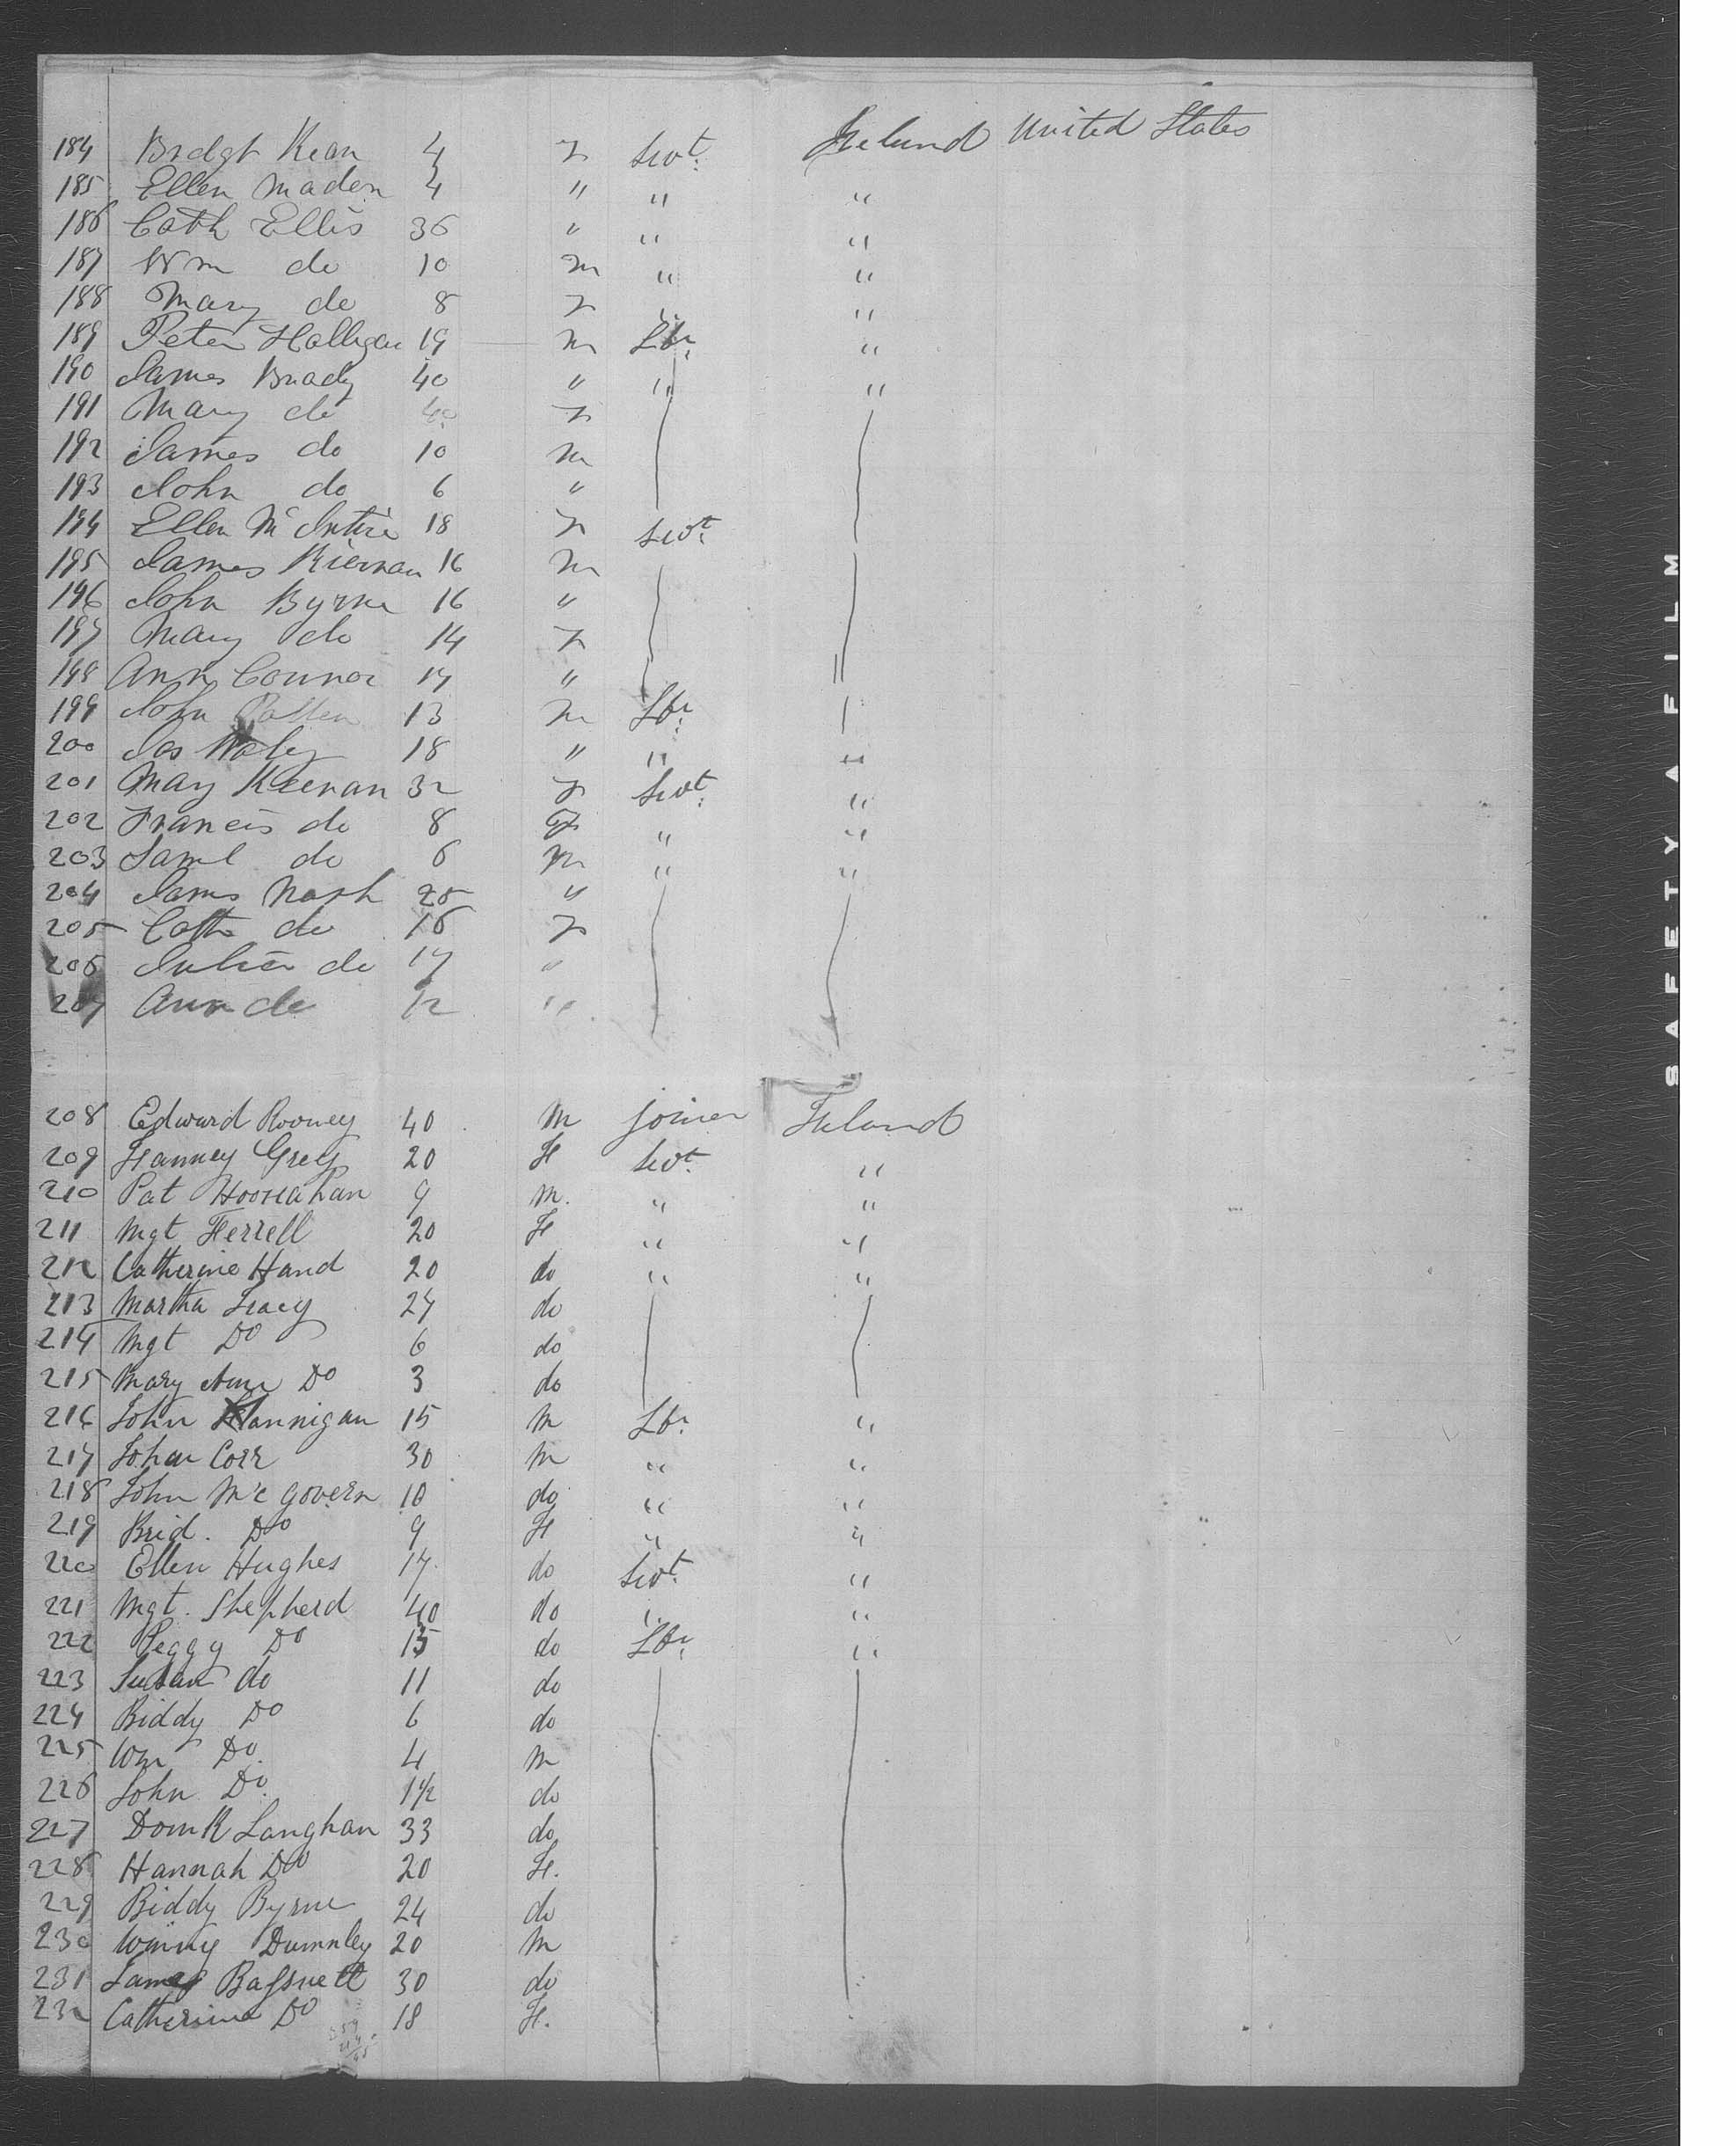 184 Bridgt Kean 4 F Svt. Ireland United States
185 Ellen Maden 4 " " "
186 Cath Ellis 36 " " "
187 Wm do 10 M " "
188 Mary do 8 F " "
189 Peter Halligan 19 M Lbr "
190 James Brady 40 " " "
191 Mary do 40 F
192 James do 10 M
193 John do 6 "
194 Ellen McIntire 18 F Svt.
195 James Kiernan 16 M
196 John Byrne 16 "
197 Mary do 14 F
198 Ann Connor 17 " "
199 John 13 M Lbr
200 Jas 18 " " "
201 Mary Keenan 32 F Svt. "
202 Francis do 8 F " "
203 Saml do 6 M " "
204 James Nash 25 "
205 Cath do 16 F
206 Julia do 17 "
207 Ann do 12 "
208 Edward Rooney 40 M Joiner Ireland
209 Fanney Grey 20 F Svt. "
210 Pat 9 M. " "
211 Mgt Ferrell 20 F " "
212 Catherine Hand 20 do " "
213 Martha Tracy 24 do
214 Mgt Do 6 do
215 Mary Ann Do 3 do
216 John Hannigan 15 M Lbr "
217 John Corr 30 M " "
218 John McGovern 10 do " "
219 Brid. Do 9 F " "
220 Ellen Hughes 17 do Svt. "
221 Mgt. Shepherd 40 do " "
222 Peggy Do 15 do Lbr "
223 Susan do 11 do
224 Biddy Do 6 do
225 Wm Do. 4 M
226 John Do. 1½ do
227 Domk Langhan 33 do
228 Hannah Do 20 F.
229 Biddy Byrne 24 do
230 Winny Dumnley 20 M
231 James Bassnett 30 do
232 Catherine Do 18 F.
SAFETY A FILM